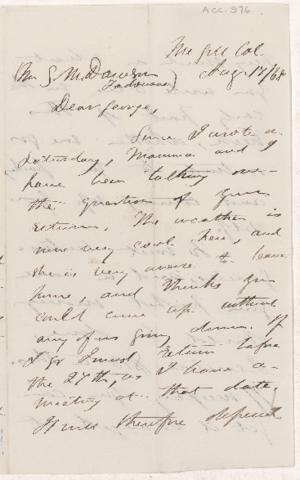 ACC. 976
McGill Col.
Aug 17/68
(Mr G. M. Dawson
Tadousac)
Dear George,
Since I wrote on
Saturday, Mamma and I
have been talking over
the question of your
return. The weather is
now very cool here, and
she is very anxious to leave
home, and thinks you
could come up without
any of us going down. If
I go I must return before
the 27th, as I have a
meeting at that date
It will therefore depend